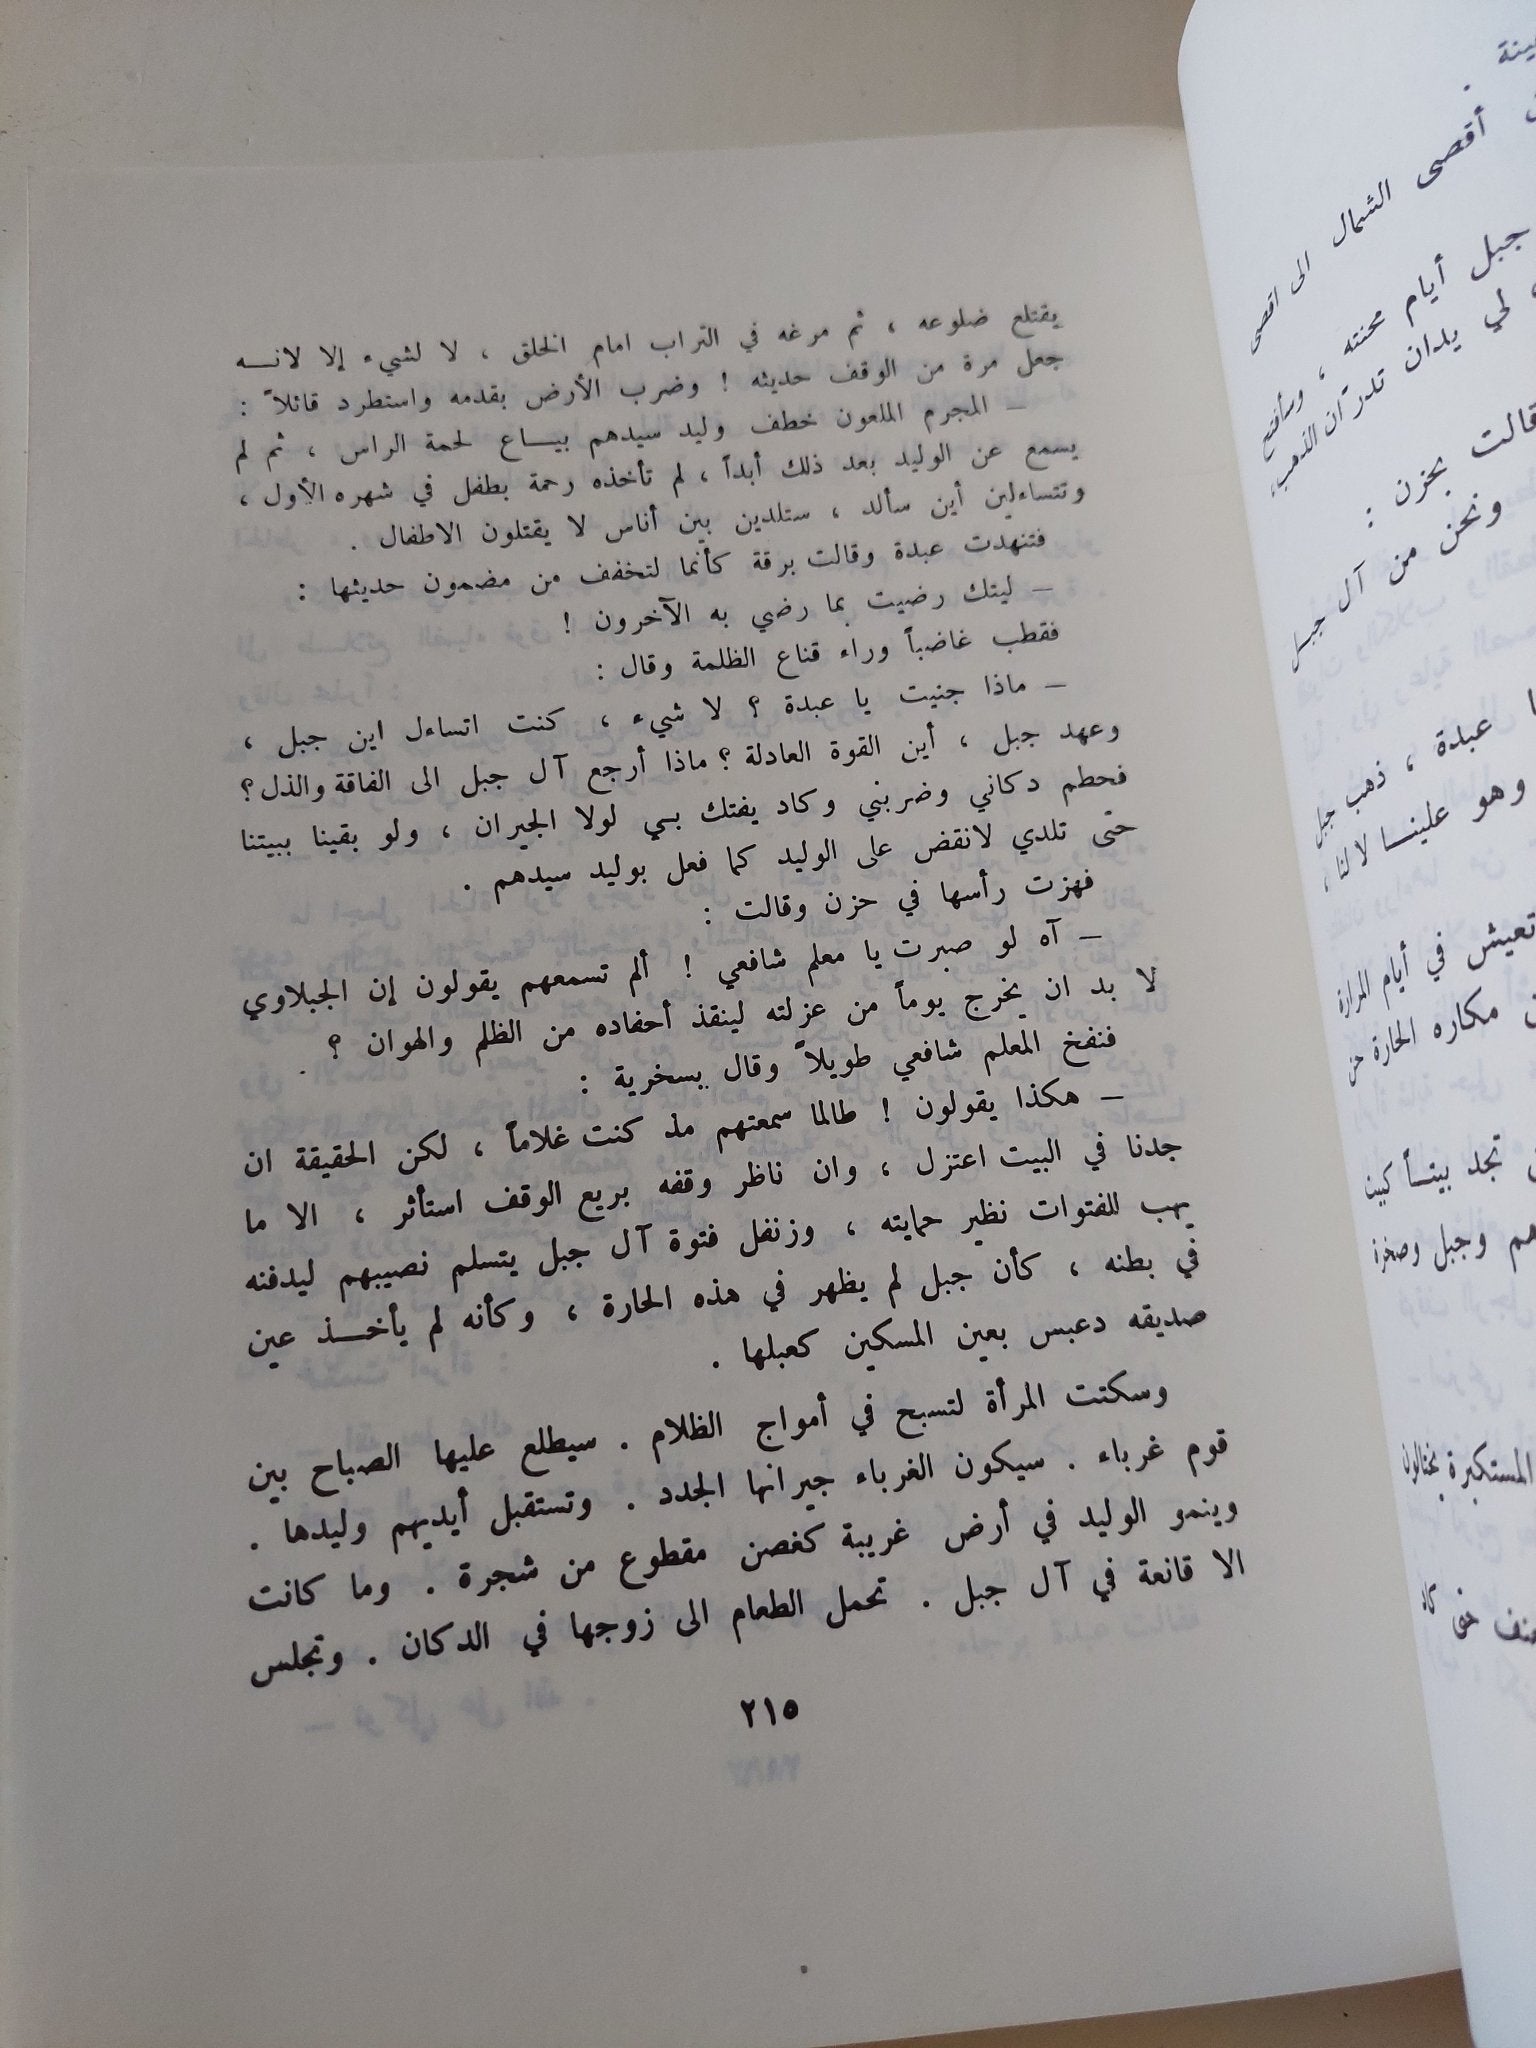 يقتلع ضلوعه ، ثم مرغه في التراب امام الخلق ، لا لشيء إلا لانــه
جعل مرة من الوقف حديثه ! وضرب الأرض بقدمه واستطرد قائلاً :
– المجرم الملعون خطف وليد سيدهم بيــاع لحمة الراس ، ثم لم
يسمع عن الوليد بعد ذلك أبداً ، لم تأخذه رحمة بطفل في شهره الأول ،
وتتساءلين أين سألد ، ستلدين بين أناس لا يقتلون الاطفال .
فتنهدت عبدة وقالت برقة كأنما لتخفف من مضمون حديثها :
– ليتك رضيت بما رضي به الآخرون !
فقطب غاضباً وراء قناع الظلمة وقال :
– ماذا جنيت يا عبدة ؟ لا شيء ، كنت اتساءل اين جبل ،
وعهد جبل ، أين القوة العادلة ؟ ماذا أرجع آل جبل الى الفاقة والذل ؟
فحطم دكاني وضربني وكاد يفتك بي لولا الجيران ، ولو بقينا ببيتنا
حتى تلدي لانقض على الوليد كما فعل بوليد سيدهم .
فهزت رأسها في حزن وقالت :
– آه لو صبرت يا معلم شافعي ! ألم تسمعهم يقولون إن الجبلاوي
لا بد ان يخرج يوماً من عزلته لينقذ أحفاده من الظلم والهوان ؟
فنفخ المعلم شافعي طويلاً وقال بسخرية :
– هكذا يقولون ! طالما سمعتهم مذ كنت غلاماً ، لكن الحقيقة ان
جدنا في البيت اعتزل ، وان ناظر وقفه بريع الوقف استأثر ، الا ما
يهب للفتوات نظير حمايته ، وزنفل فتوة آل جبل يتسلم نصيبهم ليدفنه
في بطنه ، كأن جبل لم يظهر في هذه الحارة ، وكأنه لم يأخــذ عين
صديقه دعبس بعين المسكين كعبلها .
وسكتت المرأة لتسبح في أمواج الظلام . سيطلع عليها الصباح بين
قوم غرباء . سيكون الغرباء جيرانها الجدد . وتستقبل أيديهم وليدها .
وينمو الوليد في أرض غريبة كغصن مقطوع من شجرة . وما كانت
الا قانعة في آل جبل . تحمل الطعام الى زوجها في الدكان . وتجلس
٢١٥
أقصى الشمال الى اقصى
جبل أيام محنته ، وسأفتح
لي يدان تدرّان الذهب،
قالت بحزن :
ونحن من آل جبل
عبدة ، ذهب جبل
وهو علينــا لا لنا ،
تعيش في أيام المرارة
مكاره الحارة من
تجد بيتــاً
وجبل وصخرة
المستكبرة يختالون